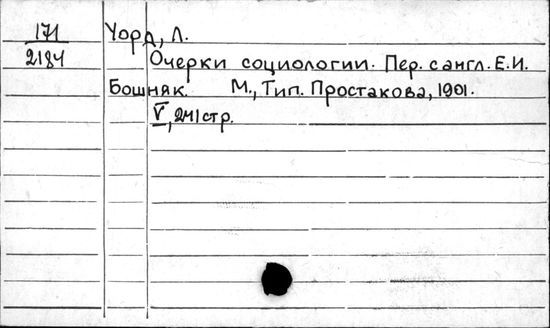 171 Уорд, Л.
2184 Очерки социологии. Пер. с англ. Е.И.
Бошняк. М., Тип. Простакова, 1901.
V, 241 стр.